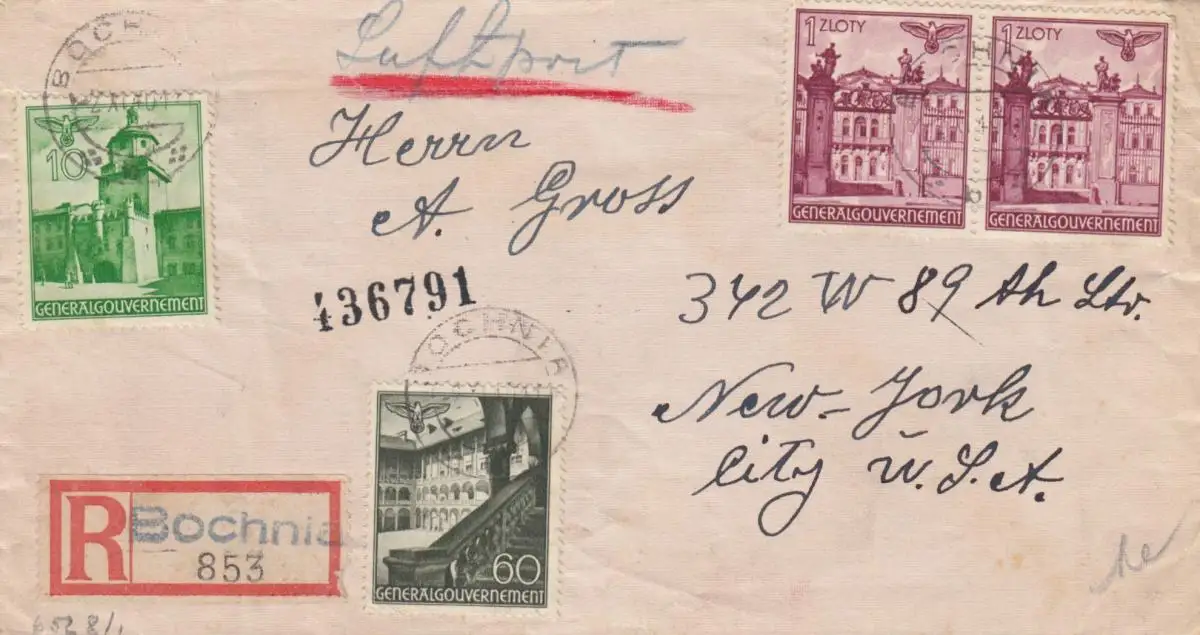 BOCH
XI.40
10
GENERALGOUVERNEMENT
Luftpost
1 ZLOTY
GENERALGOUVERNEMENT
1 ZLOTY
GENERALGOUVERNEMENT
Herrn
A. Gross
436791
342 W 89 th Str.
New-York
City U.S.A.
OCHNIA
60
GENERALGOUVERNEMENT
R Bochnia
853